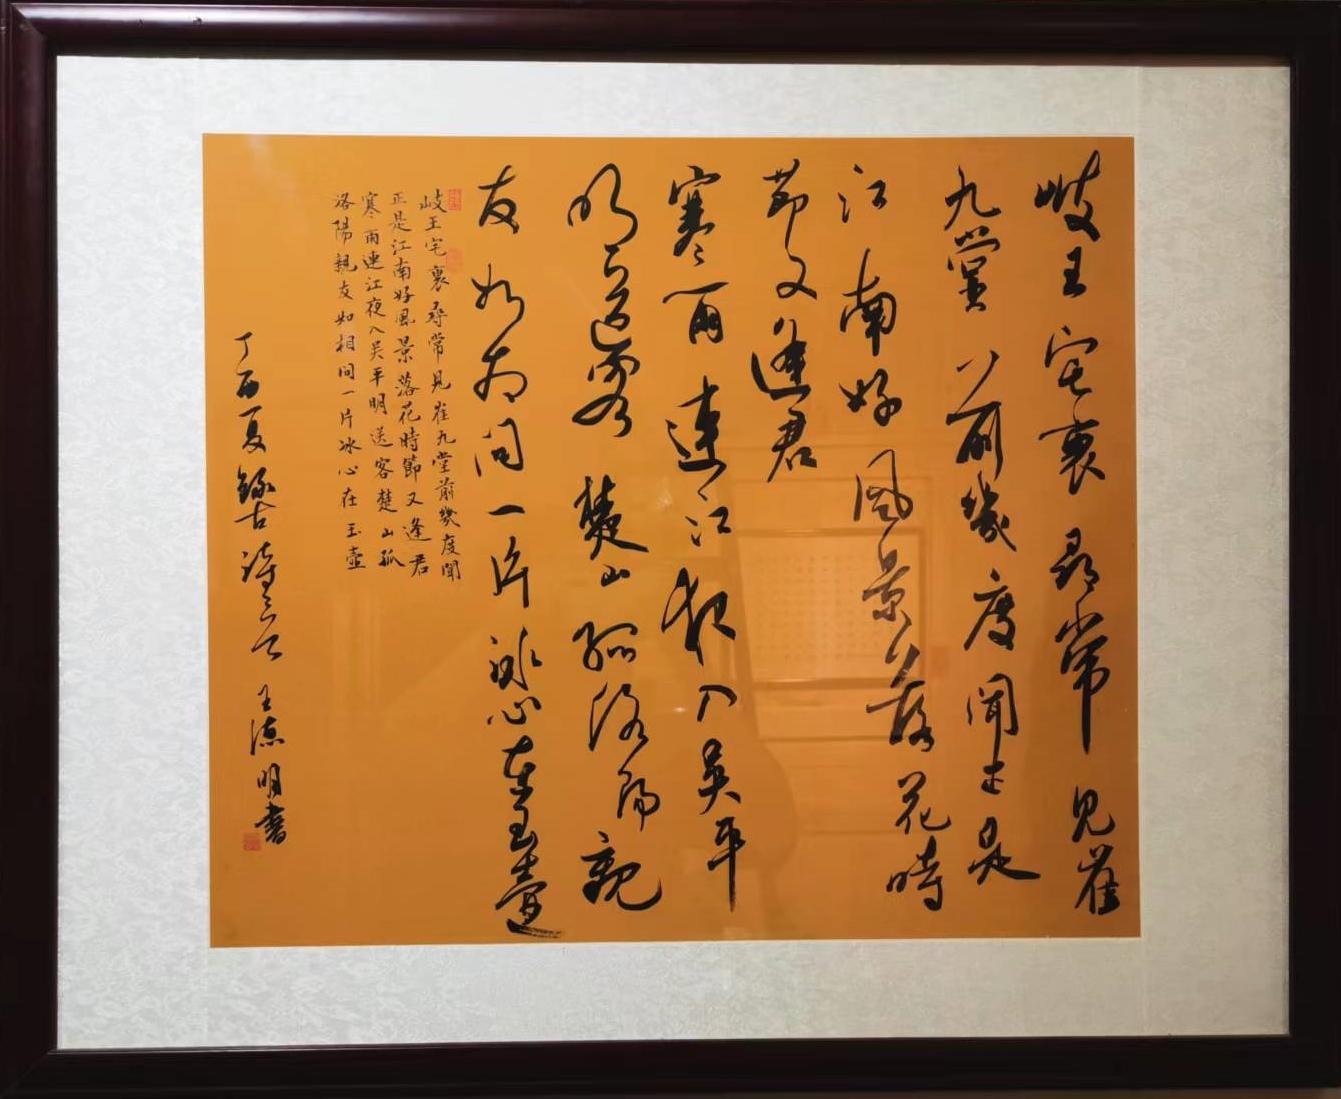 岐王宅裏尋常見崔
九堂前幾度聞正是
江南好風景落花時
節又逢君
寒雨連江夜入吳平
明送客楚山孤洛陽親
友如相問一片冰心在玉壺
岐王宅裏尋常見崔九堂前幾度聞
正是江南好風景落花時節又逢君
寒雨連江夜入吳平明送客楚山孤
洛陽親友如相問一片冰心在玉壺
丁酉夏錄古詩二首王德明書